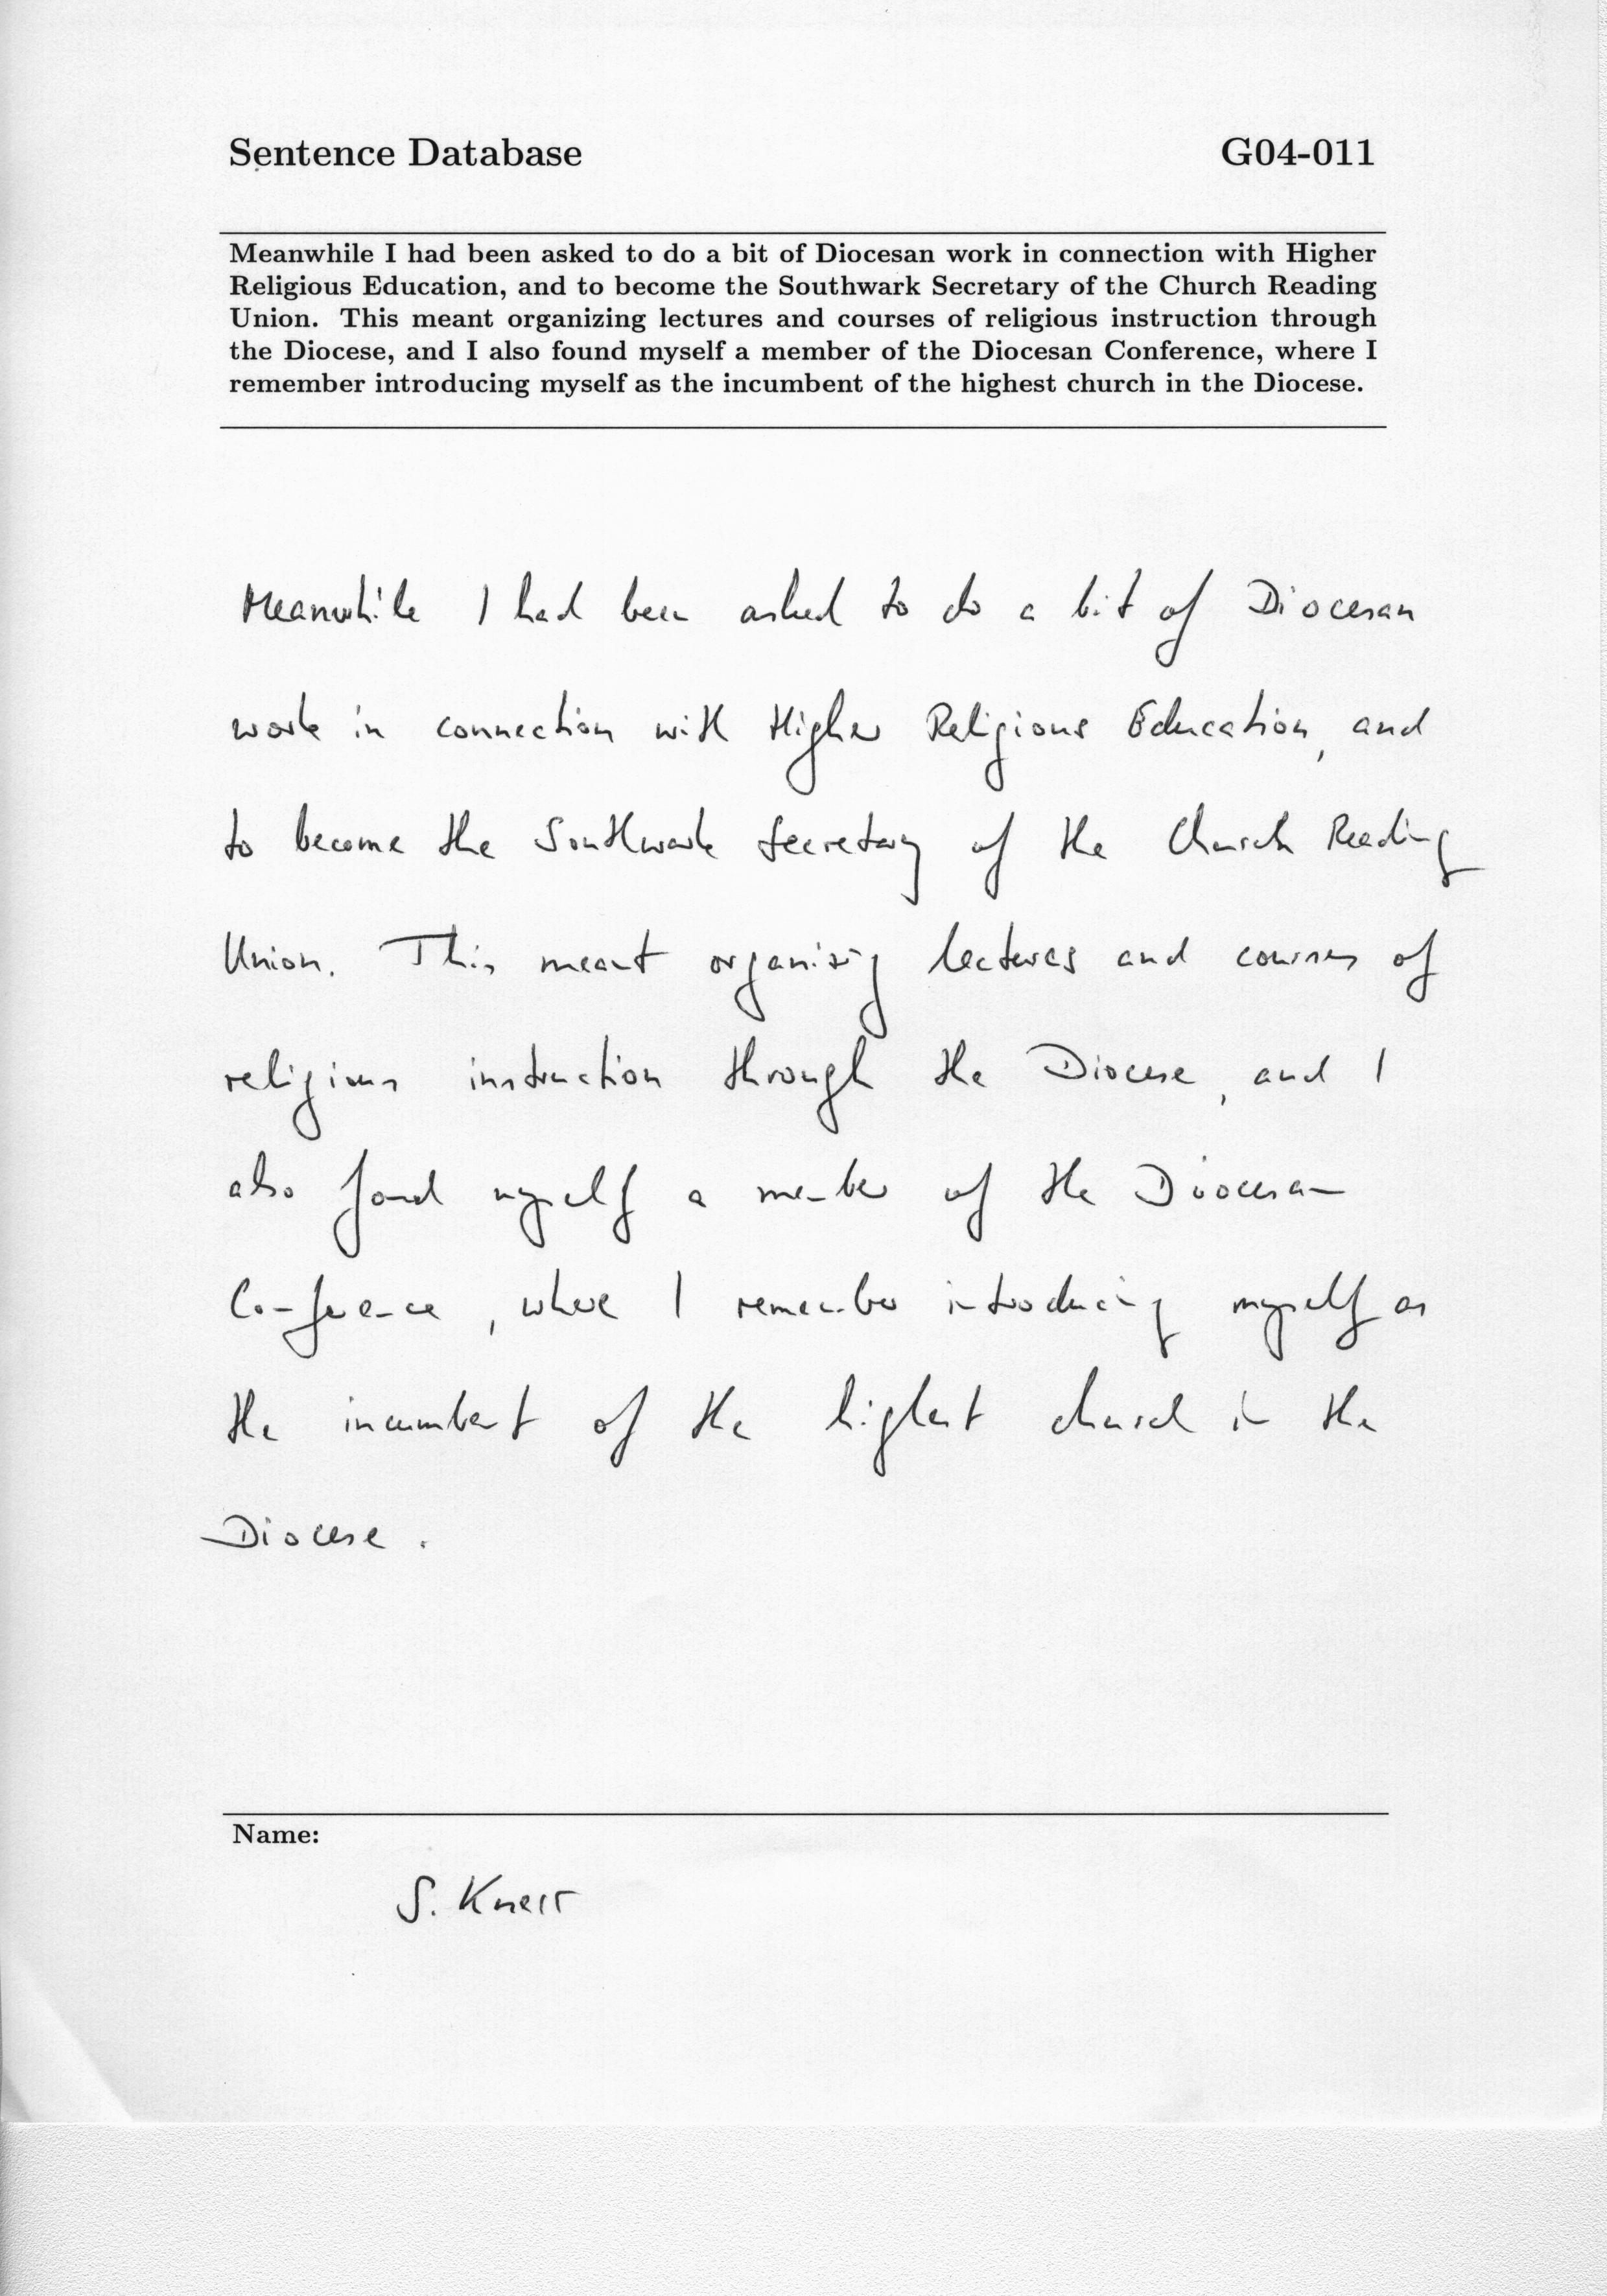 Sentence Database G04-011
Meanwhile I had been asked to do a bit of Diocesan work in connection with Higher
Religious Education, and to become the Southwark Secretary of the Church Reading
Union. This meant organizing lectures and courses of religious instruction through
the Diocese, and I also found myself a member of the Diocesan Conference, where I
remember introducing myself as the incumbent of the highest church in the Diocese.
Meanwhile I had been asked to do a bit of Diocesan
work in connection with Higher Religious Education, and
to become the Southwark Secretary of the Church Reading
Union. This meant organizing lectures and courses of
religious instruction through the Diocese, and I
also found myself a member of the Diocesan
Conference, where I remember introducing myself as
the incumbent of the highest church in the
Diocese.
Name:
S. Knerr